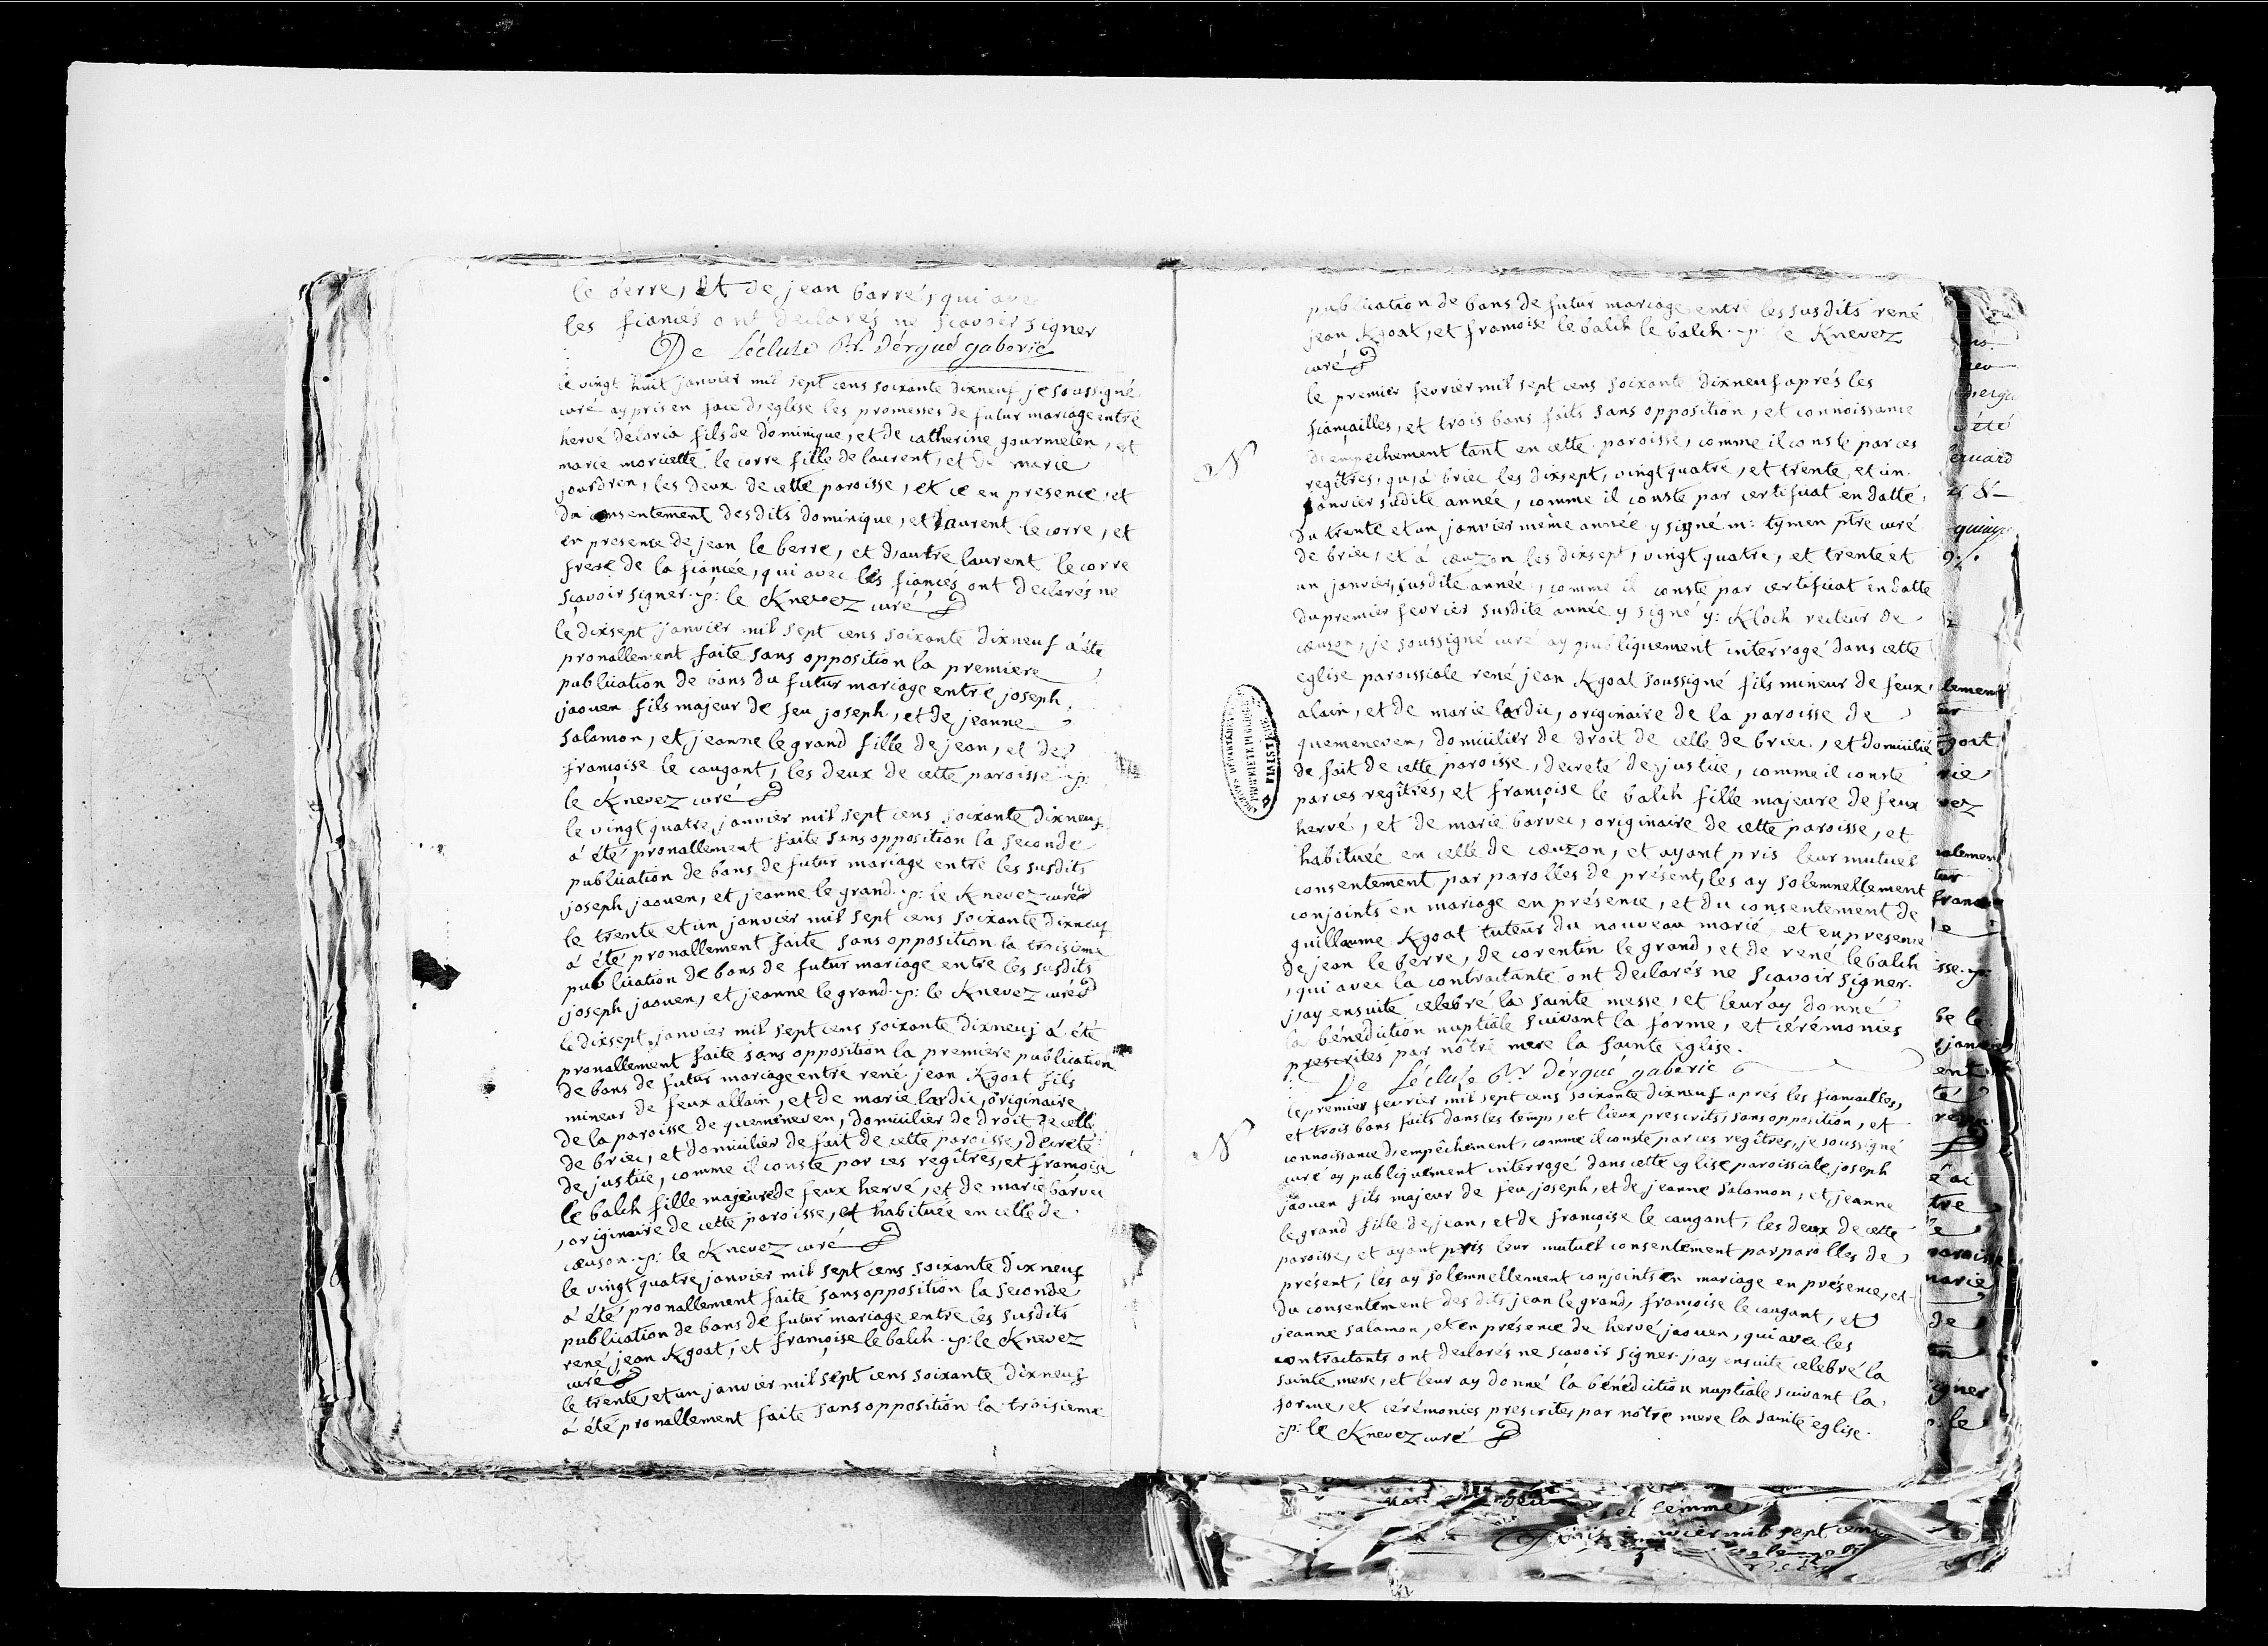 le berre, et de jean barré, qui avec
les fiancés ont declarés ne scavoir signer
De Lécluse Dérgué gaberic
le vingt huit janvier mil sept cens soixante dixneuf je soussigné
curé ay pris en face d'eglise les promesses de futur mariage entre
hervé fils de dominique, et de catherine gourmelen, et
marie moricette le corre fille de laurent, et de marie
jourdren, les deux de cette paroisse, et ce en presence, et
du consentement desdits dominique, et laurent le corre, et
en presence de jean le berre, et d'autre laurent le corre
frere de la fiancée, qui avec les fiancés ont declarés ne
scavoir signer. p: le Knevez curé
le dixsept janvier mil sept cens soixante dixneuf a été
pronallement faite sans opposition la premiere
publication de bans du futur mariage entre joseph
jaouen fils majeur de feu joseph, et de jeanne
salamon, et jeanne le grand fille de jean, et de
francoise le caugant, les deux de cette paroisse p:
le Knevez curé
le vingt quatre janvier mil sept cens soixante dixneuf
a été pronallement faite sans opposition la seconde
publication de bans de futur mariage entre les susdits
joseph jaouen, et jeanne le grand. p: le Knevez curé
le trente et un janvier mil sept cens soixante dixneuf
a été pronallement faite sans opposition la troisieme
publication de bans de futur mariage entre les susdits
joseph jaouen, et jeanne le grand. p: le Knevez curé
le dixsept janvier mil sept cens soixante dixneuf a été
pronallement faite sans opposition la premiere publication
de bans de futur mariage entre rené jean Kgoat fils
mineur de feux allain, et de marie lardic, originaire
de la paroisse de quemeneven, domicilier de droit de celle
de briec, et domicilier de fait de cette paroisse, decreté
de justice, comme il conste par ces regîtres, et francoise
le balch fille majeure de feux hervé, et de marie barvec
, originaire de cette paroisse, et habituée en celle de
cœuson. p: le Knevez curé
le vingt quatre janvier mil sept cens soixante dixneuf
a été pronallement faite sans opposition la seconde
publication de bans de futur mariage entre les susdits
rené jean Kgoat, et francoise le balch. p: le Knevez
curé
le trente, et un janvier mil sept cens soixante dixneuf
a été pronallement faite sans opposition la troisieme
publication de bans de futur mariage entre les susdits rené
jean Kgoat, et francoise le balch le balch. p: le Knevez
curé
le premier fevrier mil sept cens soixante dixneuf aprés les
fiançailles, et trois bans faits sans opposition, et connoissance
d'empechement tant en cette paroisse, comme il conste par ces
regîtres, qu'à briec les dixsept, vingt quatre, et trente, et un
janvier sudite année, comme il conste par certificat en datte
du trente et un janvier même année y signé m: tymen ptre curé
de briec, et à cœuzon les dixsept, vingt quatre, et trente et
un janvier, susdite année, comme il conste par certificat en datte
du premier fevrier susdite année y signé y: Kloch recteur de
cœuzon, je soussigné curé ay publiquement interrogé dans cette
eglise paroissiale rené jean Kgoat soussigné fils mineur de feux
alain, et de marie lardic, originaire de la paroisse de
quemeneven, domicilier de droit de celle de briec, et domicilié
de fait de cette paroisse, decreté de justice, comme il conste
par ces regîtres, et françoise le balch fille majeure de feux
hervé, et de marie barvec, originaire de cette paroisse, et
habituée en celle de cœuzon, et ayant pris leur mutuel
consentement par parolles de présent, les ay solemnellement
conjoints en mariage en présence, et du consentement de
guillaume Kgoat tuteur du nouveau marié, et en presence
de jean le berre, de corentin le grand, et de rené le balch
, qui avec la contractante ont declarés ne scavoir signer.
j'ay ensuite celebré la sainte messe, et leur ay donné
la bénediction nuptiale suivant la forme, et cérémonies
prescrites par nôtre mere la sainte eglise.
De Lécluse Dérgué gaberic
le premier fevrier mil sept cens soixante dixneuf aprés les fiancailles,
et trois bans faits dans les temps, et lieux prescrits, sans opposition, et
connoissance d'empêchement, comme il conste par ces regîtres, je soussigné
curé ay publiquement interrogé dans cette eglise paroissiale joseph
jaouen fils majeur de feu joseph, et de jeanne salamon, et jeanne
le grand fille de jean, et de francoise le caugant, les deux de cette
paroisse, et ayant pris leur mutuel consentement par parolles de
présent, les ay solemnellement conjoints en mariage en présence, et
du consentement des dits jean le grand, francoise le caugant, et
jeanne salamon, et en présence de hervé jaouen, qui avec les
contractants ont declarés ne scavoir signer. j'ay ensuite celebré la
sainte messe, et leur ay donné la bénédiction nuptiale suivant la
forme, et cérémonies prescrites par nôtre mere la sainte eglise.
p: le Knevez curé